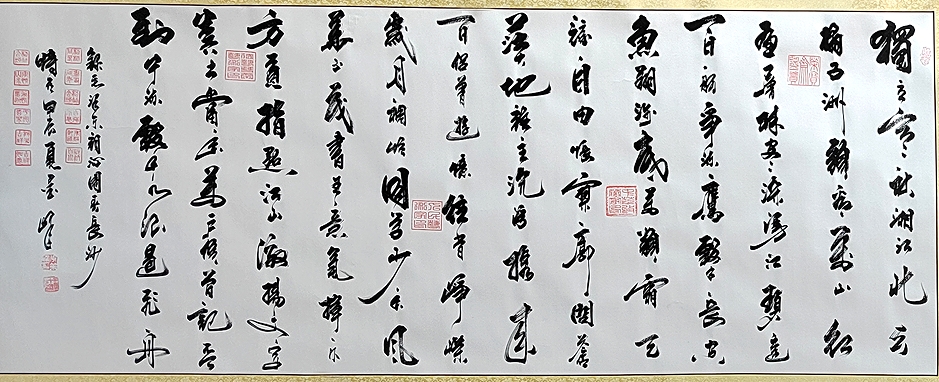 獨立寒秋湘江北去
橘子洲頭看萬山紅
遍層林盡染漫江碧透
百舸爭流鷹擊長空
魚翔淺底萬類霜天
競自由悵寥廓問蒼
茫大地誰主沉浮攜來
百侶曾遊憶往昔崢嶸
歲月稠恰同學少年風
華正茂書生意氣揮斥
方遒指點江山激揚文字
糞土當年萬戶侯曾記否
到中流擊水浪遏飛舟
錄毛澤東詞沁園春長沙
時在甲辰夏